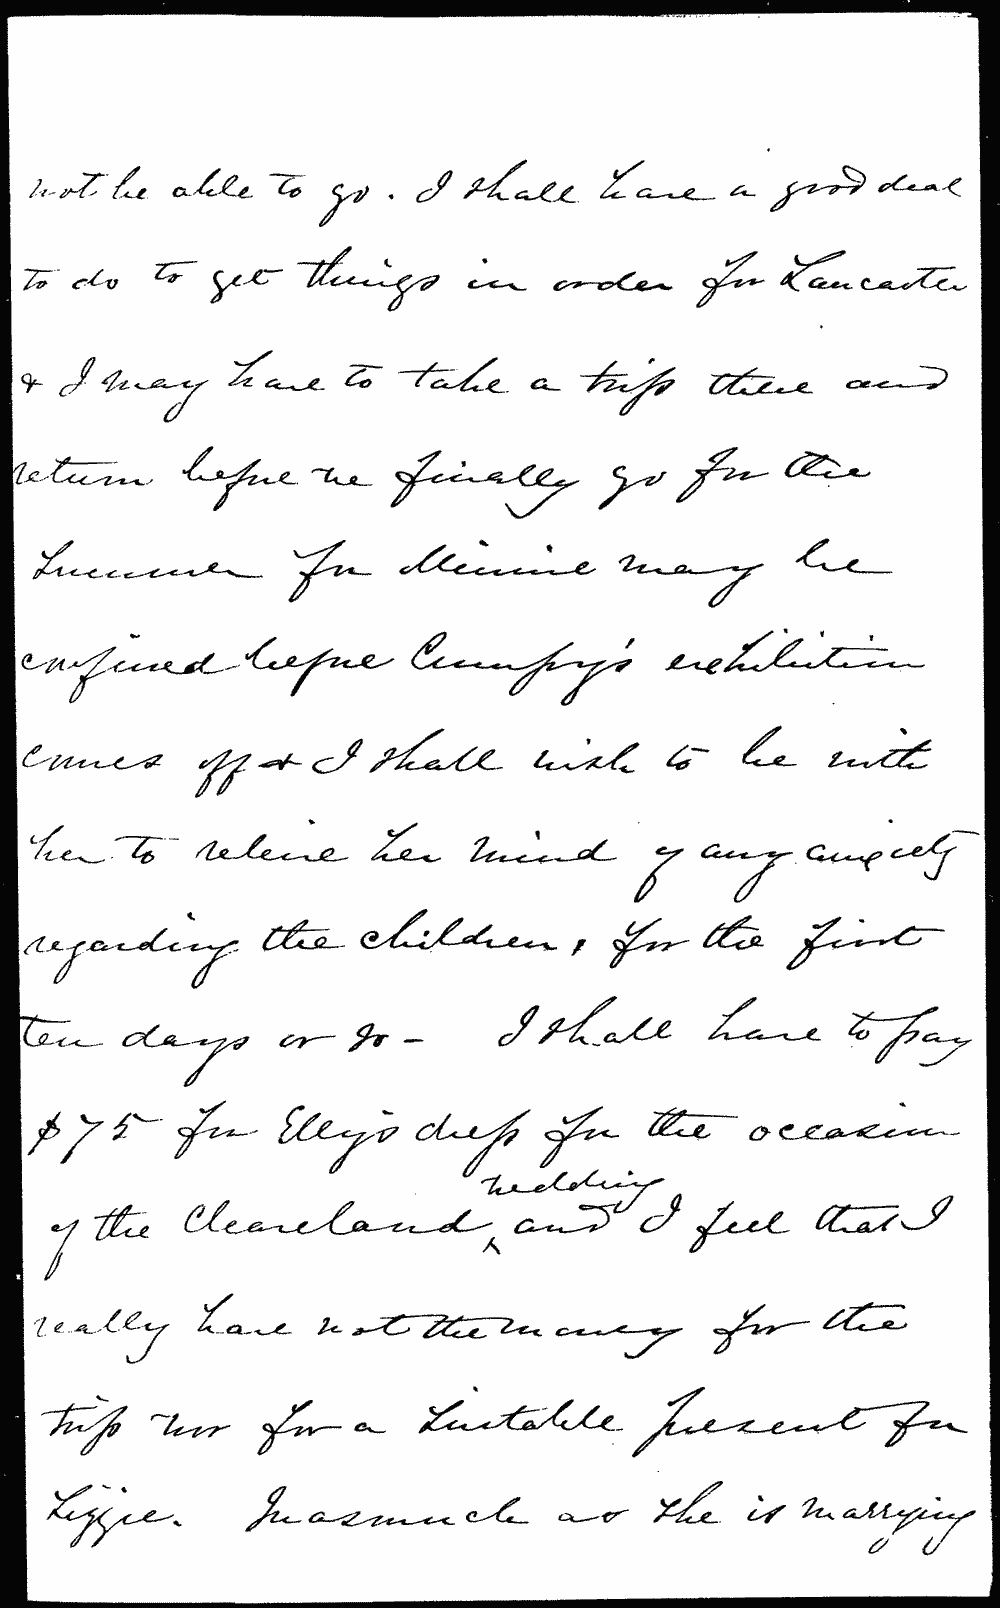 not be able to go. I shall have a good deal
to do to get things in order for Lancaster
& I may have to take a trip there and
return before we finally go for the
Summer for Minnie may be
confined before Cumpy's exhibition
comes off & I shall wish to be with
her to releive her mind of any anxiety
regarding the children, for the first
ten days or so - I shall have to pay
$75 for Elly's dress for the occasion
wedding
of the Cleaveland ^ and I feel that I
really have not the money for the
trip nor for a suitable present for
Lizzie. Inasmuch as she is marrying